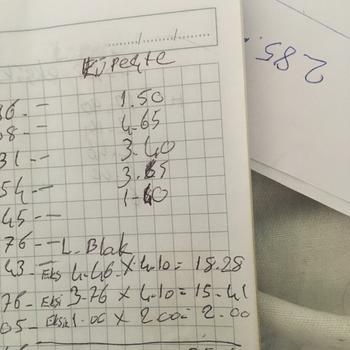 ...../...../......
Küpeşte
36. — 1.50
08 - — 4.65
31 — 3.40
54 - — 3.65
45 — 1.40
76 - — L. Blak
43 — Eksi 4.46 x 4.10 = 18.28
76 - Eksi 3.76 x 4.10 = 15.41
05 - Eksi 1.00 x 2.00 = 2.00
2.85